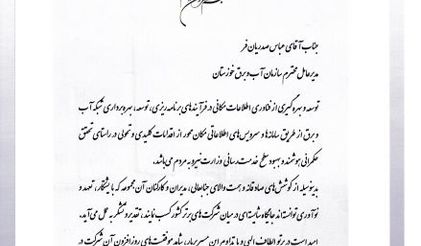 جناب آقای عباس صدریان فر
مدیرعامل محترم سازمان آب و برق خوزستان
توسعه و بهره گیری از فناوری اطلاعات مکانی در فرآیندهای برنامه ریزی، توسعه، بهره برداری شبکه آب
و برق از طریق سامانه‌ها و سرویس‌های اطلاعاتی مکان محور از اقدامات کلیدی و تحولی در راستای تحقق
حکمرانی هوشمند و بهبود سطح خدمت رسانی وزارت نیرو به مردم می‌باشد.
بدینوسیله از کوشش‌های صادقانه و همت والای جنابعالی، مدیران و کارکنان آن مجموعه که با پشتکار، تعهد و
نوآوری توانسته‌اند جایگاه شایسته‌ای در میان شرکت‌های برتر کشور کسب نمایند، تقدیر و تشکر به عمل می‌آید.
امید است در پرتو الطاف الهی و با تداوم این مسیر پربار، شاهد موفقیت‌های روزافزون آن شرکت در